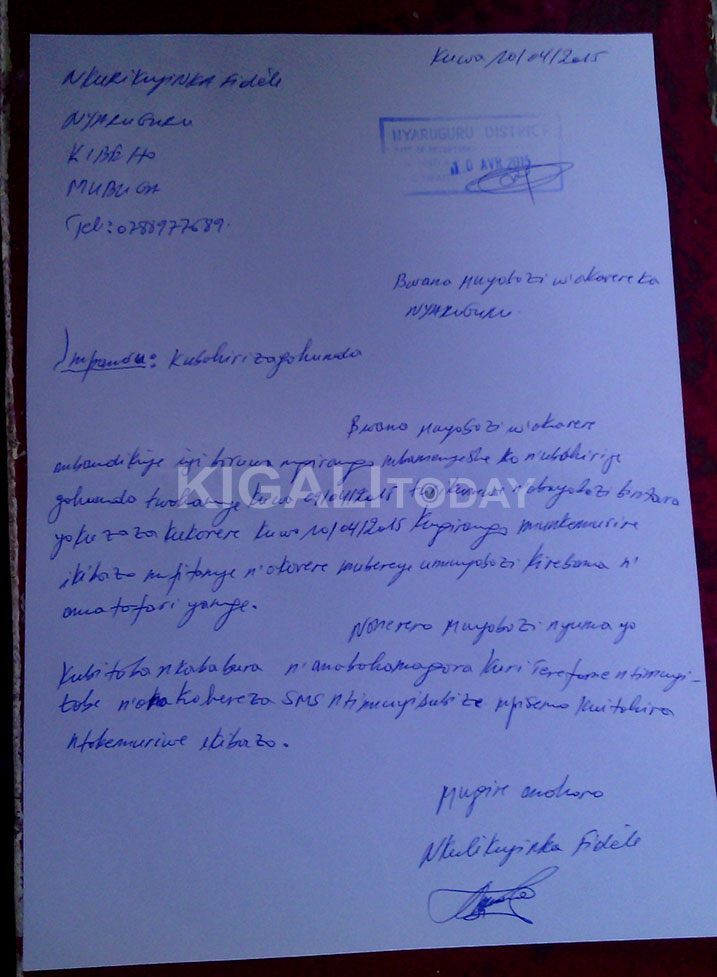 Kuwa 10/04/2015
NKURIKIYINKA Fidèle
NYARUGURU
KIBEHO
MUBUGA
Tel: 0788977689.
NYARUGURU DISTRICT
10 AVR 2015
Bwana Muyobozi w'akarere ka
NYARUGURU.
Impamvu: Kubahiriza gahunda
Bwana Muyobozi w'akarere
mbandikiye iyi baruwa ngirango mbamenyeshe ko n'ubahirije
gahunda twahanye kuwa 09/04/2015
yo kuza za kukarere kuwa 10/04/2015 Kugirango munkemurire
ikibazo mfitanye n'akarere mubereye umuyobozi kirebana n'
amatafari yanje.
KIGALI TODAY
Noherero Muyobozi nyuma yo
Kubitaba nkababura n'anabahamagara kuri Terefone ntimuyi-
tabe n'aba Kobereza SMS ntimuyisubize mfisema kwitahira
ntakemuriwe ikibazo.
Mugire amahoro
Nkulikiyinka Fidèle